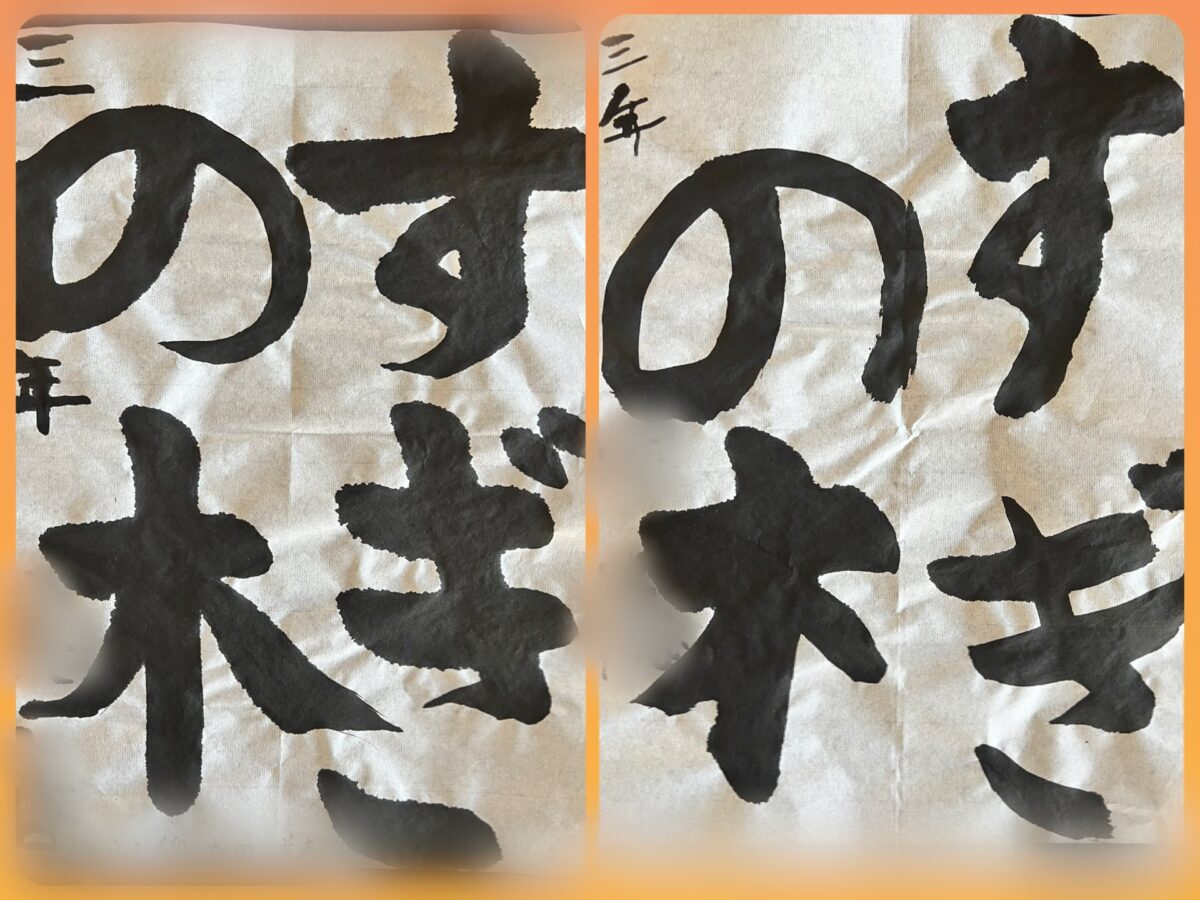 すぎ
の木
三年
すぎ
の木
三年